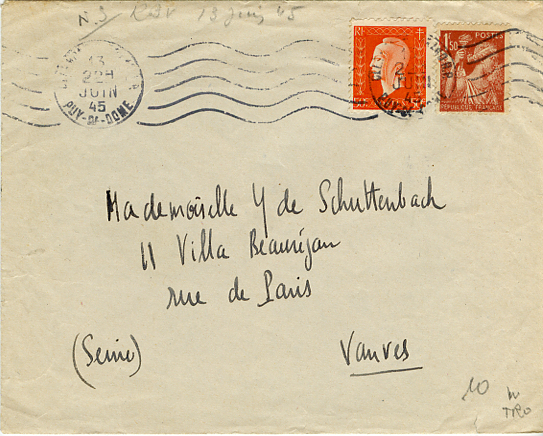 N.3 RDV 13 juin 45
13
22H
JUIN
45
PUY-DE-DOME
RF
1F50
POSTES
REPUBLIQUE FRANÇAISE
PUY-DE-DOME
Mademoiselle Y de Schuttenbach
11 Villa Beauséjour
rue de Paris
(Seine) Vanves
10
TTRO